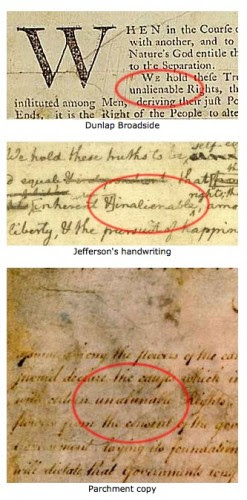 WHEN in the Course o
with another, and to
Nature's God entitle th
to the Separation.
WE hold these Tr
unalienable Rights, th
instituted among Men, deriving their just Po
Ends, it is the Right of the People to alte
Dunlap Broadside
self-e
We hold these truths to be
equal that
rights
inherent & inalienable, amo
liberty, & the pursuit of happin
Jefferson's handwriting
among the flowers of the ea
declare the causes which i
unalienable Rights
from the consent of the gov
laying its foundation
will dictate that Governments long
Parchment copy